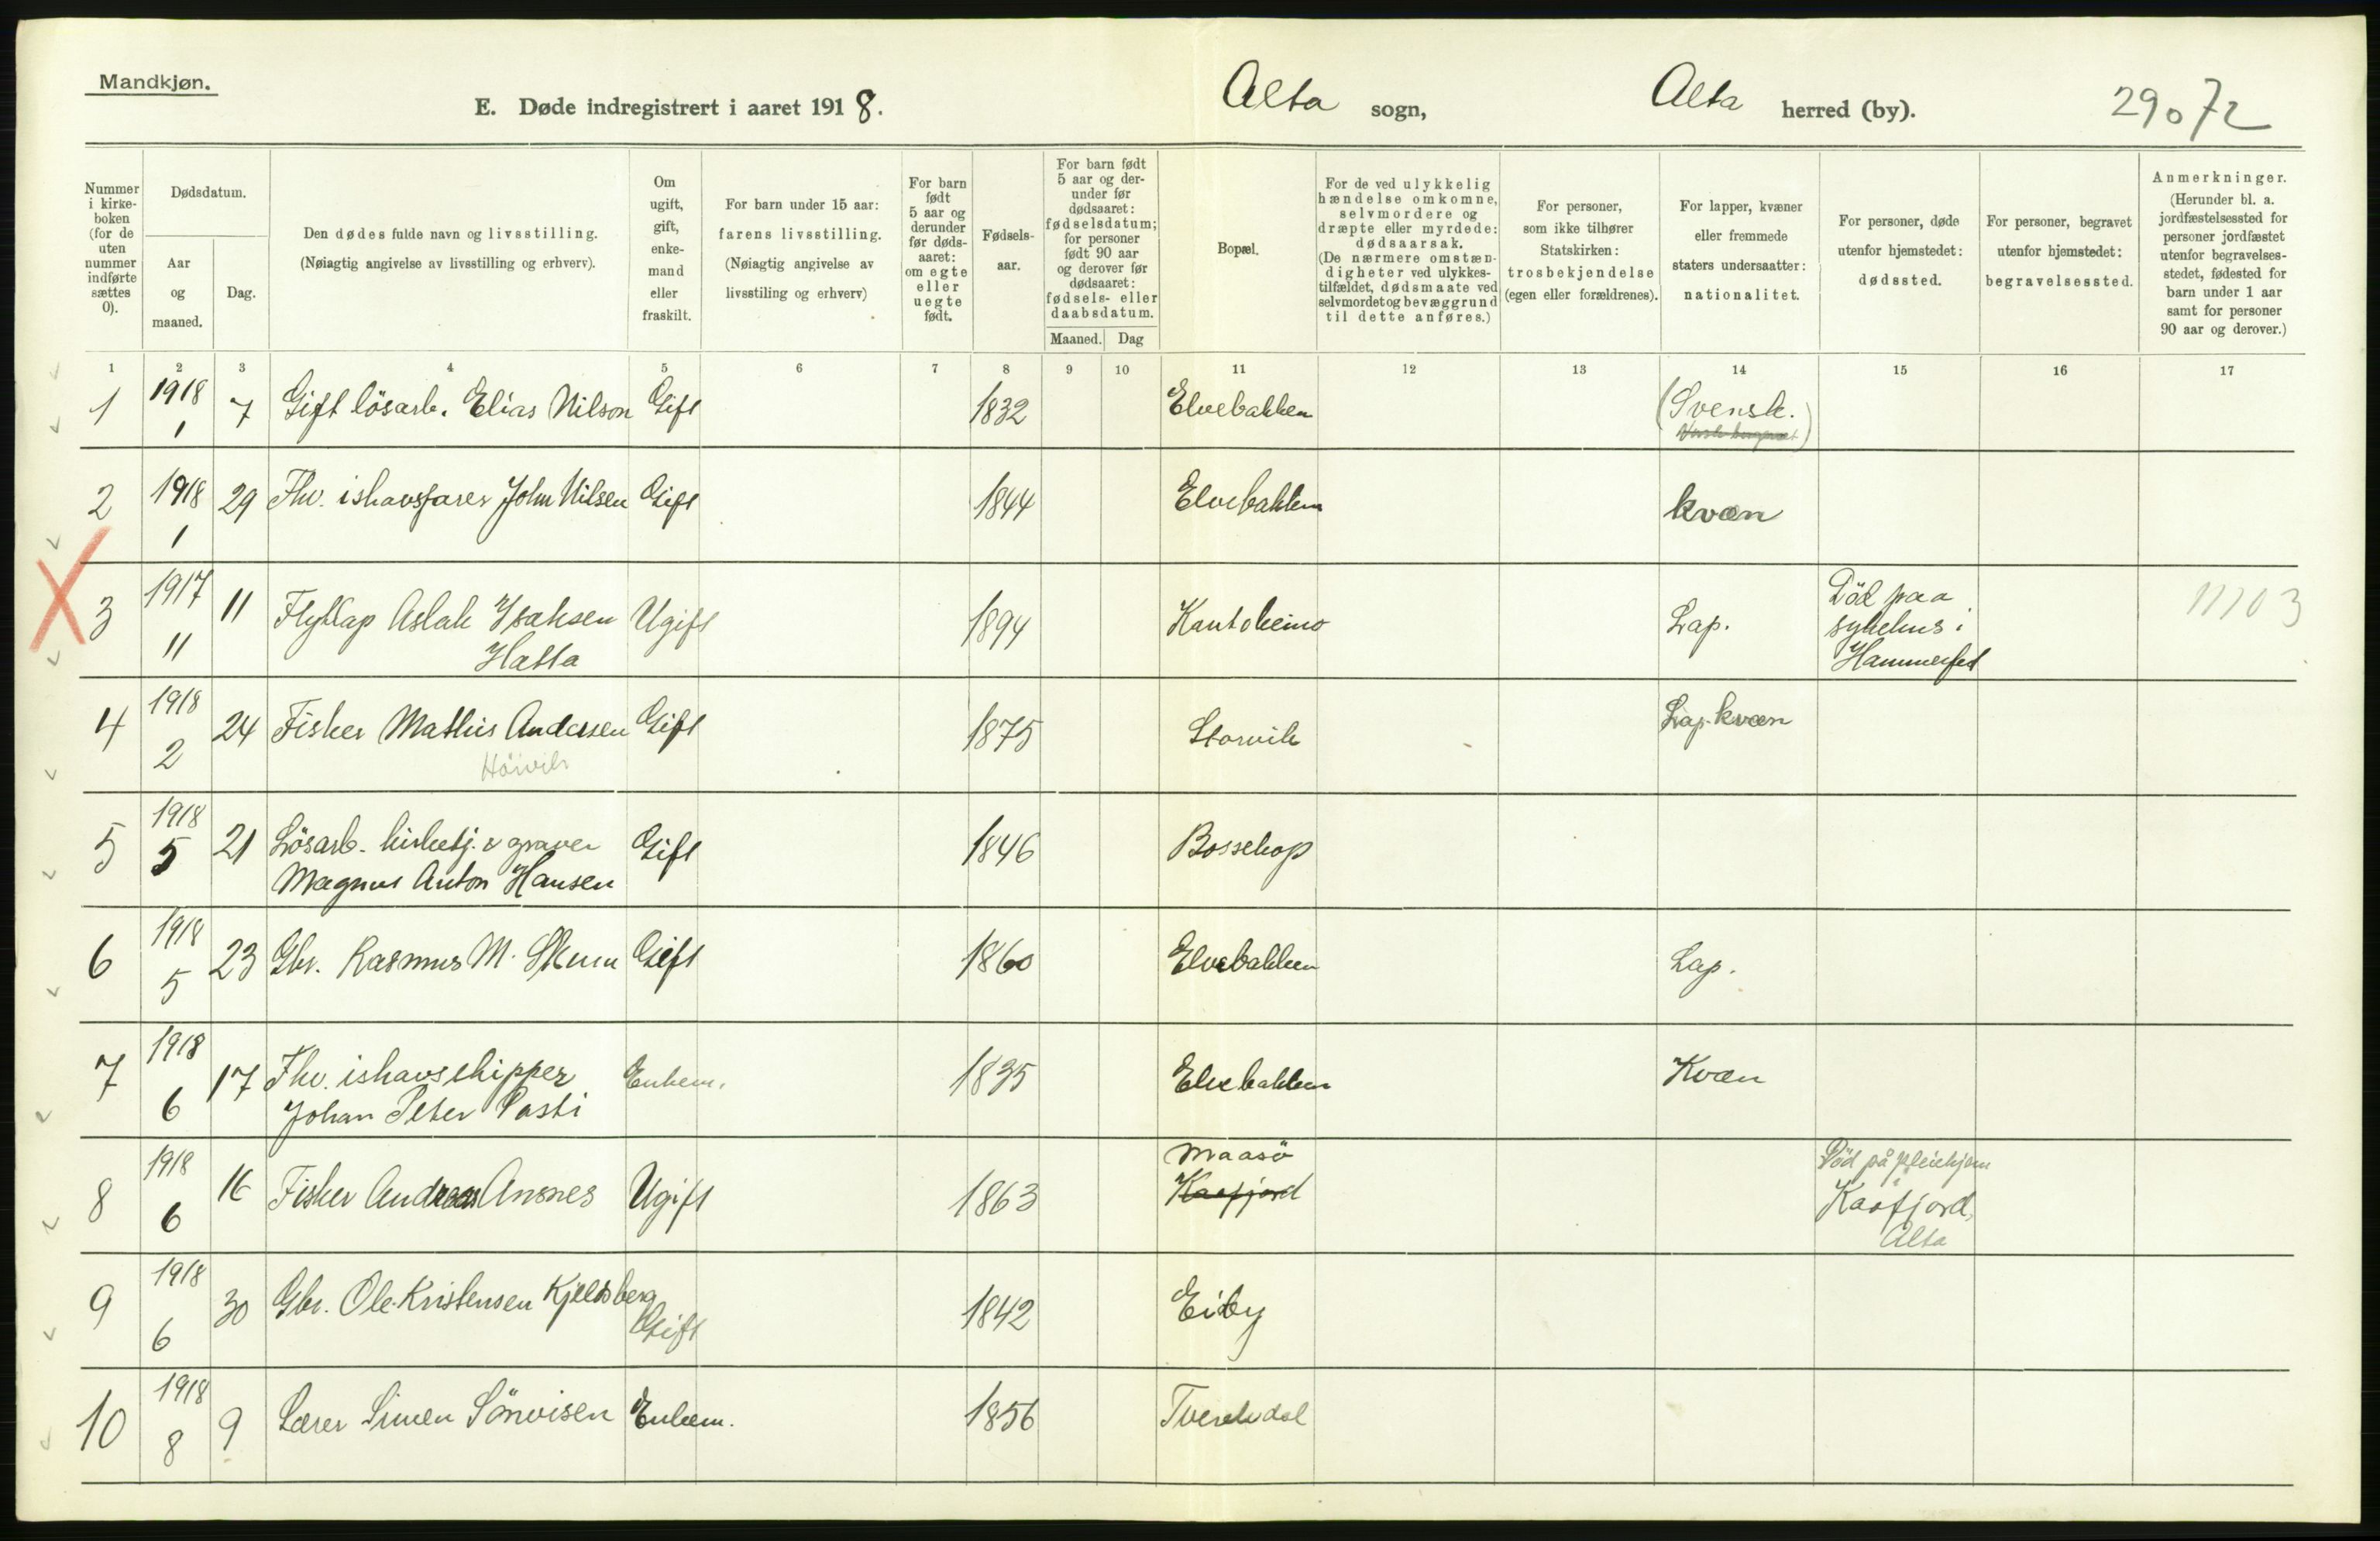 Mandkjøn.
E. Døde indregistrert i aaret 1918. Alta sogn, Alta herred (by). 29072
Nummer i kirke-boken (for de uten nummer indførte sættes 0).
Dødsdatum.
Aar og maaned.
Dag.
Den dødes fulde navn og livsstilling.
(Nøiagtig angivelse av livsstilling og erhverv).
Om ugift, gift, enke-mand eller fraskilt.
For barn under 15 aar:
farens livsstilling.
(Nøiagtig angivelse av
livsstiling og erhverv)
For barn født 5 aar og derunder før døds-aaret: om egte eller uegte født.
Fødsels-aar.
For barn født 5 aar og der-under før dødsaaret: fødselsdatum; for personer født 90 aar og derover før dødsaaret: fødsels- eller daabsdatum.
Maaned. Dag
Bopæl.
For de ved ulykkelig hændelse omkomne, selvmordere og dræpte eller myrdede: dødsaarsak. (De nærmere omstæn-digheter ved ulykkes-tilfældet, dødsmaate ved selvmordet og bevæggrund til dette anføres.)
For personer, som ikke tilhører Statskirken: trosbekjendelse (egen eller forældrenes).
For lapper, kvæner eller fremmede staters undersaatter: nationalitet.
For personer, døde utenfor hjemstedet: dødssted.
For personer, begravet utenfor hjemstedet: begravelsessted.
Anmerkninger. (Herunder bl. a. jordfæstelsessted for personer jordfæstet utenfor begravelses-stedet, fødested for barn under 1 aar samt for personer 90 aar og derover.)
1 2 3 4 5 6 7 8 9 10 11 12 13 14 15 16 17
1 1918 1 7 Gift lösarb. Elias Nilson Gift 1832 Elvebakken (Svensk.)
2 1918 1 29 Fhv. ishavsfarer John Nilsen Gift 1844 Elvebakken kvæn
3 1917 11 11 Flytlap Aslak Isaksen Ugift 1894 Kautokeino Lap. Död paa
Hatta sykehus i
Hammerfest 11103
4 1918 2 24 Fisker Mathis Andersen Gift 1875 Storvik Lap-kvæn
Höivik
5 1918 5 21 Lösarb. kirketj. & graver Gift 1846 Bossekop
Magnus Anton Hansen
6 1918 5 23 Gbr. Rasmus M. Skum Gift 1860 Elvebakken Lap.
7 1918 6 17 Fhv. ishavsskipper Enkem. 1835 Elvebakken Kvæn
Johan Peter Posti
8 1918 6 16 Fisker Andreas Ansnes Ugift 1863 Maasö
Kaafjord Död på pleiehjem
Kaafjord,
Alta
9 1918 6 30 Gbr. Ole Kristensen Kjeldsberg Gift 1842 Eiby
10 1918 8 9 Lærer Simen Sönvisen Enkem. 1856 Tverelvdal